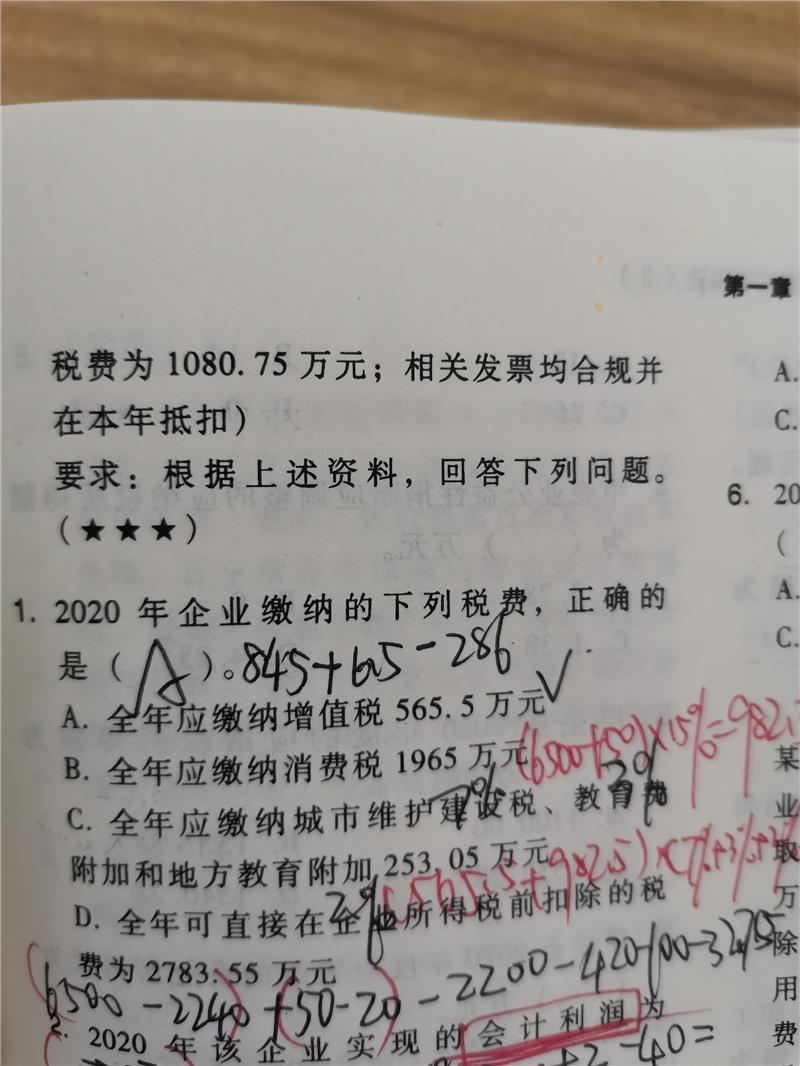 第一章
税费为 1080.75 万元；相关发票均合规并
在本年抵扣）
要求：根据上述资料，回答下列问题。
（★★★）
1. 2020 年企业缴纳的下列税费，正确的
是（ A ）。845+6.5-286
A. 全年应缴纳增值税 565.5 万元 ✓
B. 全年应缴纳消费税 1965 万元 (6500+50)×15%=982.
C. 全年应缴纳城市维护建设税、教育费
7% 3%
附加和地方教育附加 253.05 万元
2% (565.5+982.5)×(7%+3%+2%
D. 全年可直接在企业所得税前扣除的税
费为 2783.55 万元
6500-2240+(50-20)-2200-420-100-
2. 2020 年该企业实现的会计利润为
-40=
A.
C.
6. 20
(
A.
C.
某
业
取
万
除
用
费